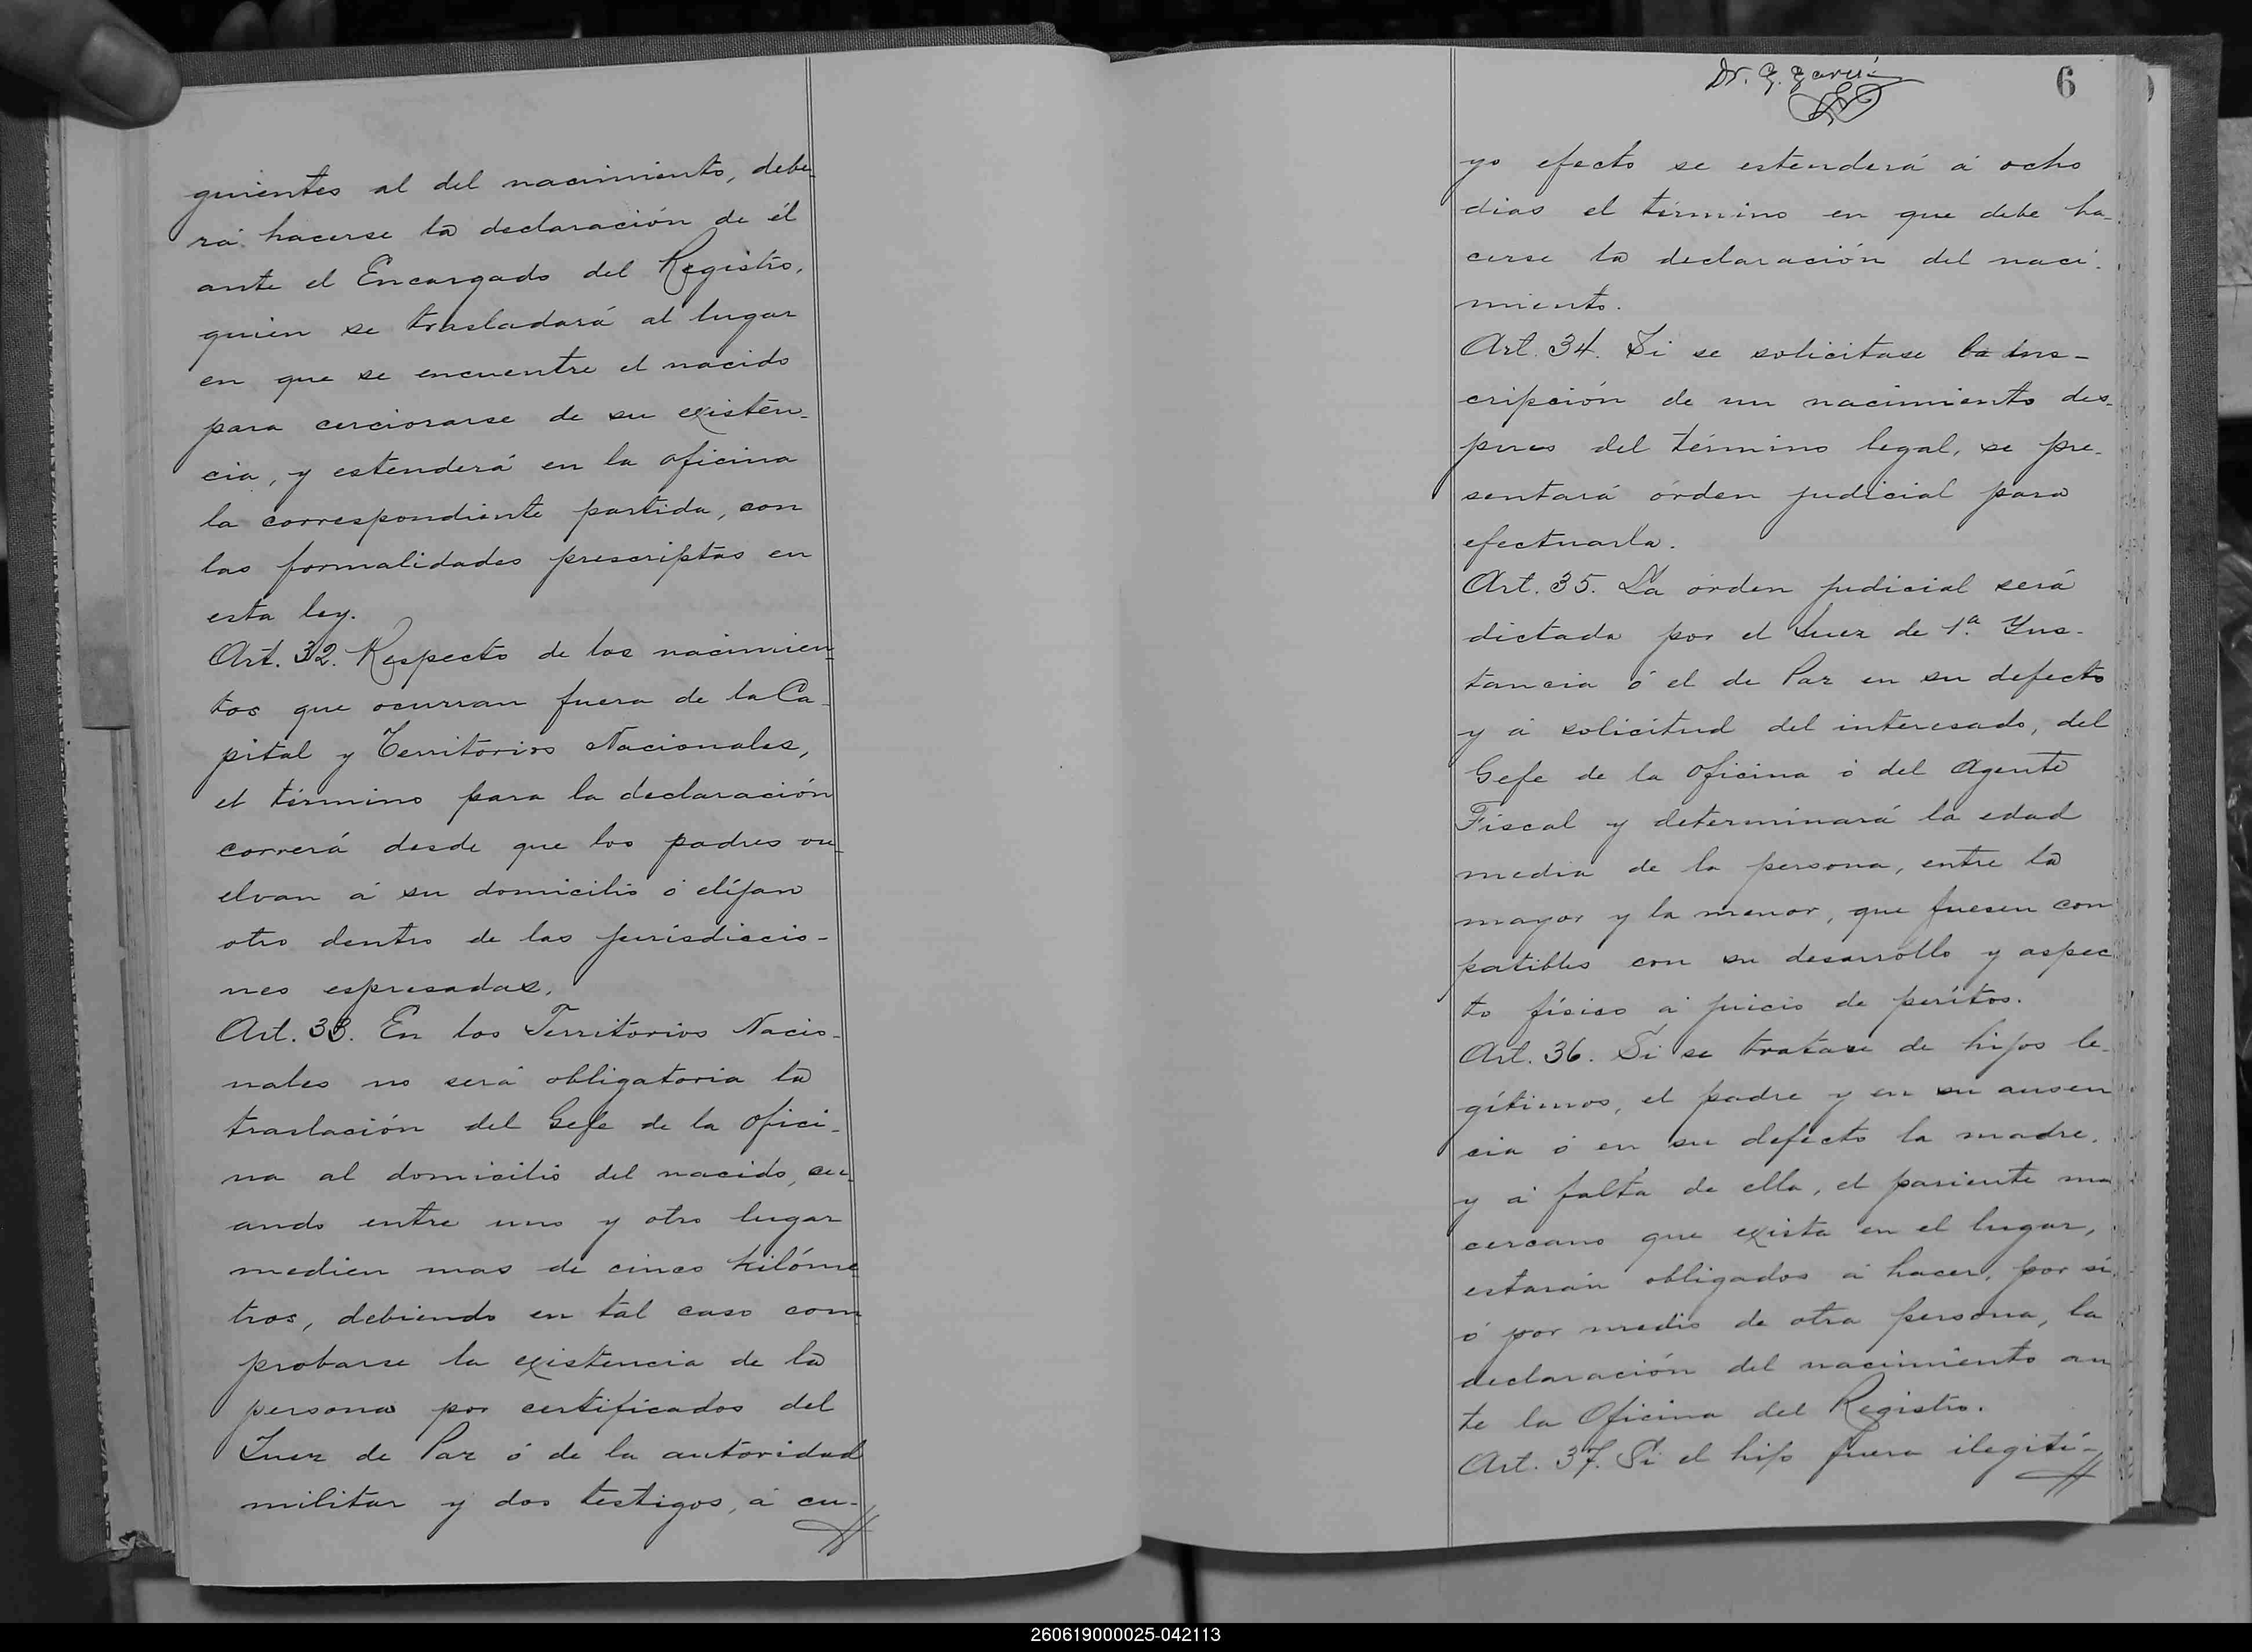 guientes al del nacimiento, debe-
rá hacerse la declaración de él
ante el Encargado del Registro,
quien se trasladará al lugar
en que se encuentre el nacido
para cerciorarse de su existen-
cia, y estenderá en la oficina
la correspondiente partida, con
las formalidades prescriptas en
esta ley.
Art. 32. Respecto de los nacimien-
tos que ocurran fuera de la Ca-
pital y Territorios Nacionales,
el término para la declaración
correrá desde que los padres vu-
elvan á su domicilio ó elíjan
otro dentro de las jurisdiccio-
nes espresadas.
Art. 33. En los Territorios Nacio-
nales no será obligatoria la
traslación del Gefe de la Ofici-
na al domicilio del nacido, cu-
ando entre uno y otro lugar
medien mas de cinco kilóme
tros, debiendo en tal caso com
probarse la existencia de la
persona por certificados del
Juez de Paz ó de la autoridad
militar y dos testigos, á cu-
Dr. G. García
6
yo efecto se estenderá á ocho
dias el término en que debe ha-
cerse la declaración del naci-
miento.
Art. 34. Si se solicitase la ins-
cripción de un nacimiento des-
pues del término legal, se pre-
sentará órden judicial para
efectuarla.
Art. 35. La órden judicial será
dictada por el Juez de 1ª. Ins-
tancia ó el de Paz en su defecto
y á solicitud del interesado, del
Gefe de la Oficina ó del Agente
Fiscal y determinará la edad
media de la persona, entre la
mayor y la menor, que fuesen com
patibles con su desarrollo y aspec
to físico á juicio de peritos.
Art. 36. Si se tratase de hijos le-
gítimos, el padre y en su ausen
cia ó en su defecto la madre,
y á falta de ella, el pariente ma
cercano que exista en el lugar,
estarán obligados á hacer, por sí,
ó por medio de otra persona, la
declaración del nacimiento an
te la Oficina del Registro.
Art. 37. Si el hijo fuera ilegíti-
260619000025-042113